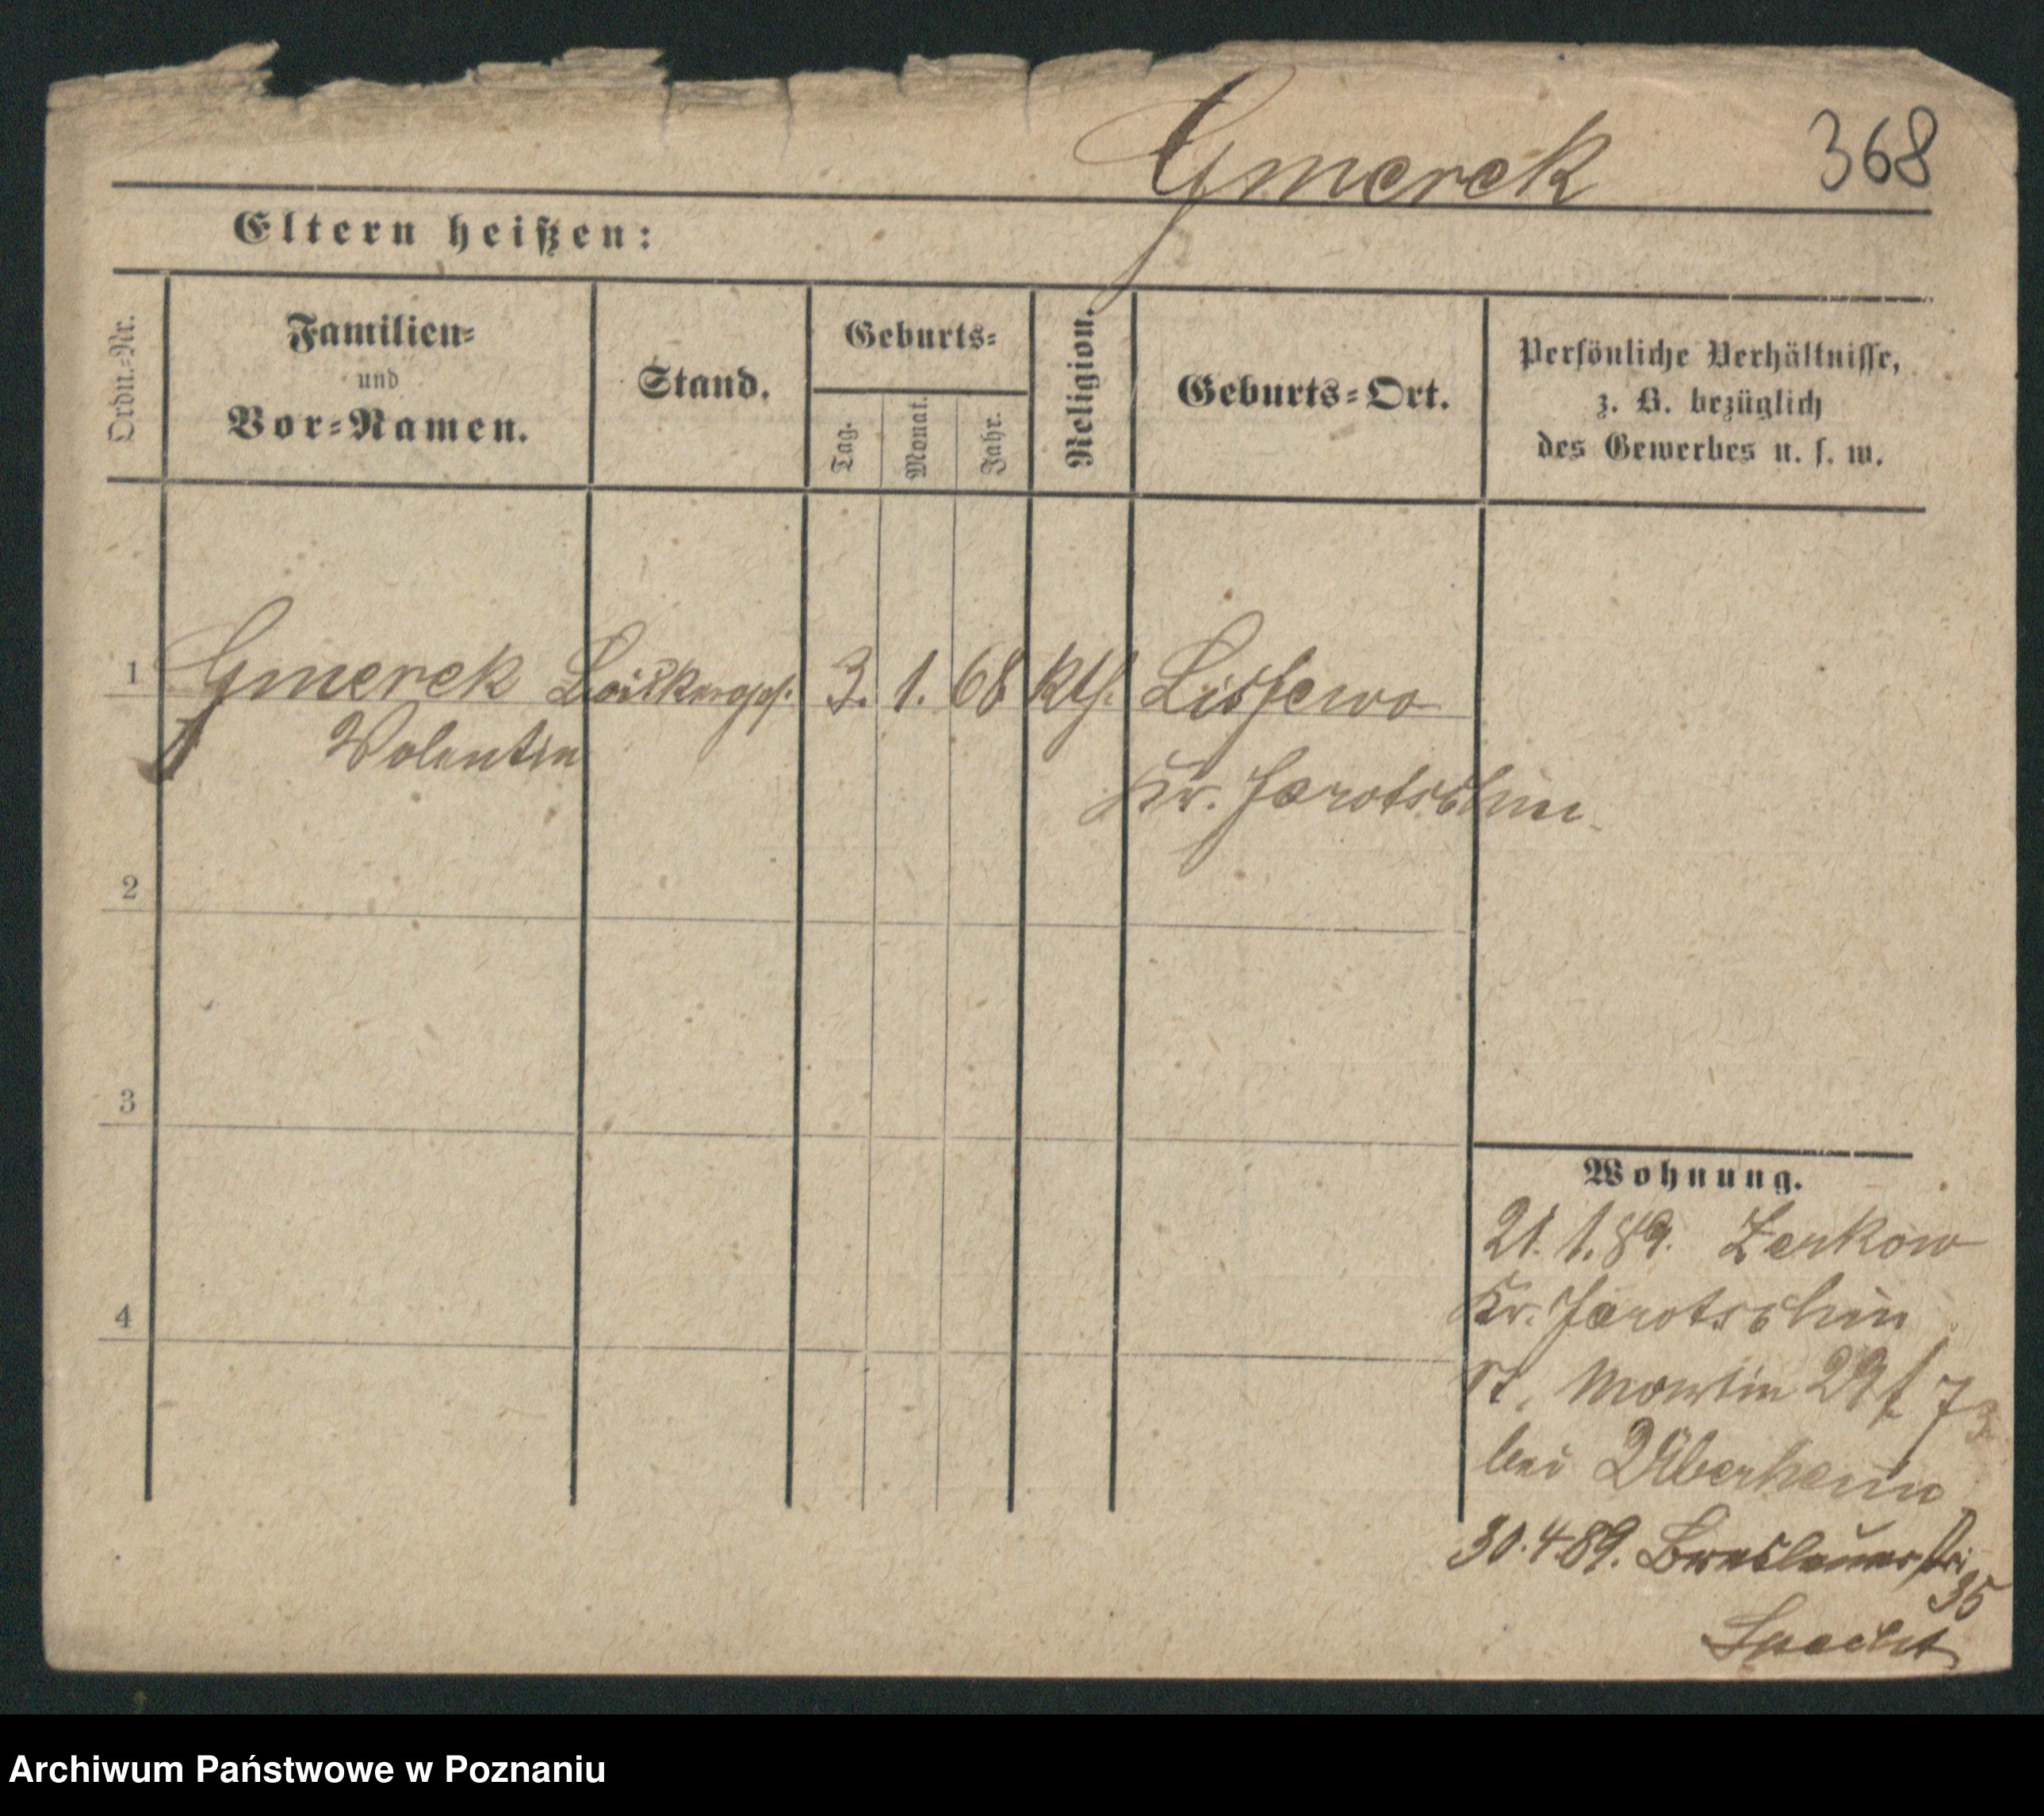 Gmerek 368
Eltern heißen:
Ordn.-Nr.
Familien-
und
Vor-Namen.
Stand.
Geburts-
Tag.
Monat.
Jahr.
Religion.
Geburts-Ort.
Persönliche Verhältnisse,
z. B. bezüglich
des Gewerbes u. s. w.
1 Gmerek 3. 1. 68 kth. Lissewo
Valentin
Kr. Jarotschin
2
3
4
Wohnung.
21. 1. 89. Zerkow
Kr. Jarotschin
St. Martin 29
bei
30.4.89. Breslauerstr.
35
Specht
Archiwum Państwowe w Poznaniu